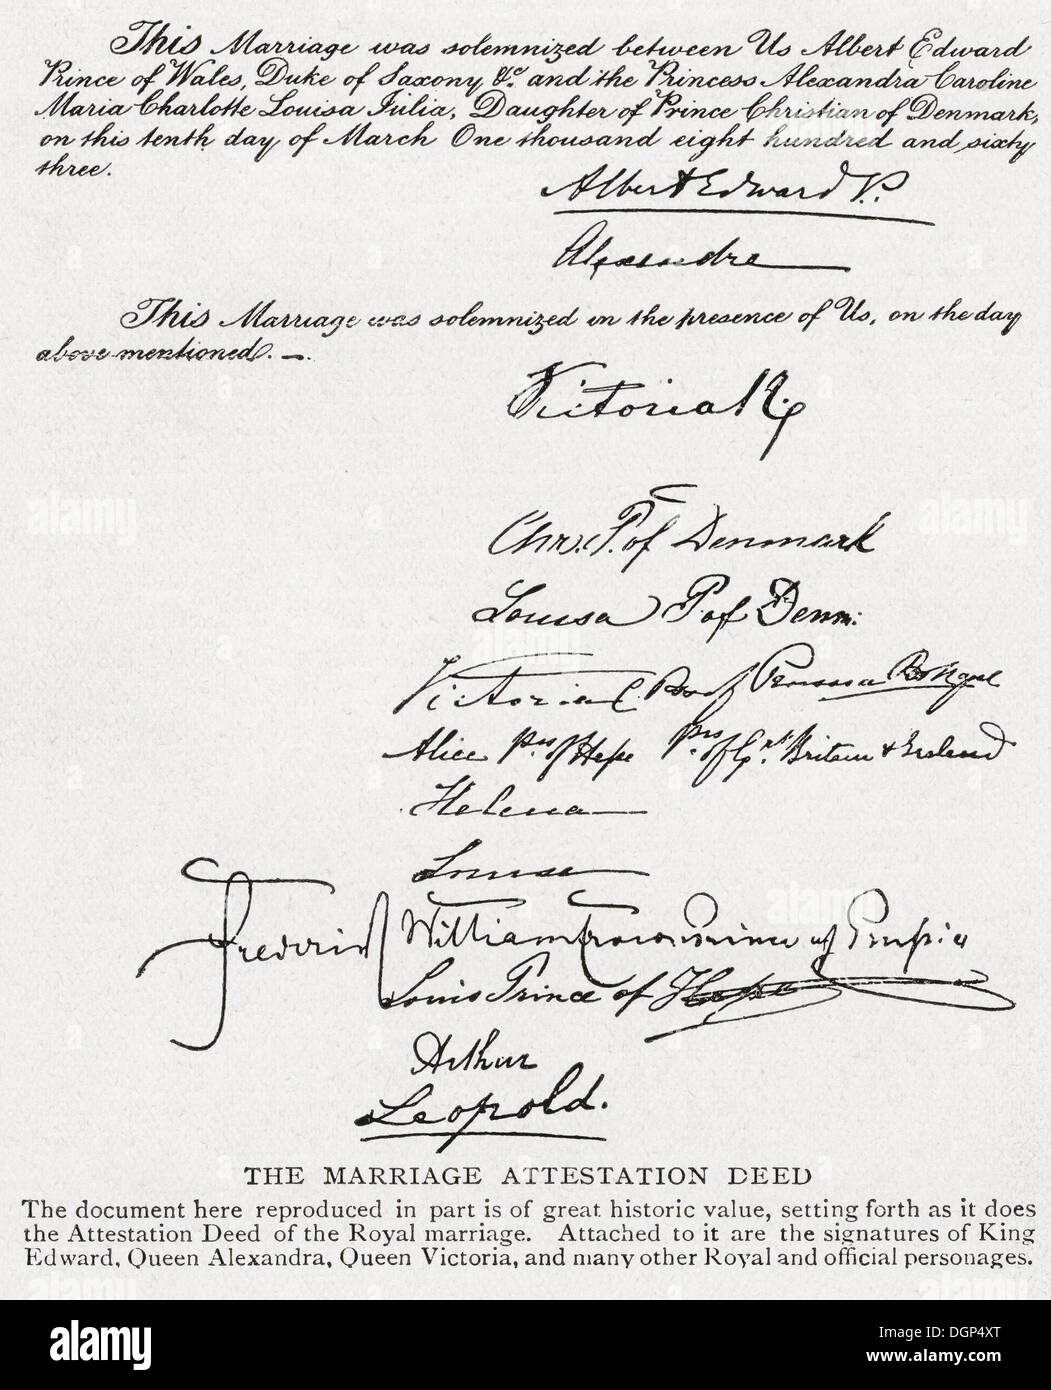 This Marriage was solemnized between Us Albert Edward
Prince of Wales, Duke of Saxony &c. and the Princess Alexandra Caroline
Maria Charlotte Louisa Julia, Daughter of Prince Christian of Denmark,
on this tenth day of March One thousand eight hundred and sixty
three.
Albert Edward P.
Alexandra
This Marriage was solemnized in the presence of Us, on the day
above mentioned. —.
Victoria R.
Chr. P. of Denmark
Louisa P of Denm:
Victoria C. of Prussia Royal
Alice Pss of Hesse Pss of Gt. Britain & Ireland
Helena
Louise
Frederick William Prince of
Louis Prince of Hesse
Arthur
Leopold.
THE MARRIAGE ATTESTATION DEED
The document here reproduced in part is of great historic value, setting forth as it does
the Attestation Deed of the Royal marriage. Attached to it are the signatures of King
Edward, Queen Alexandra, Queen Victoria, and many other Royal and official personages.
alamy
Image ID: DGP4XT
www.alamy.com